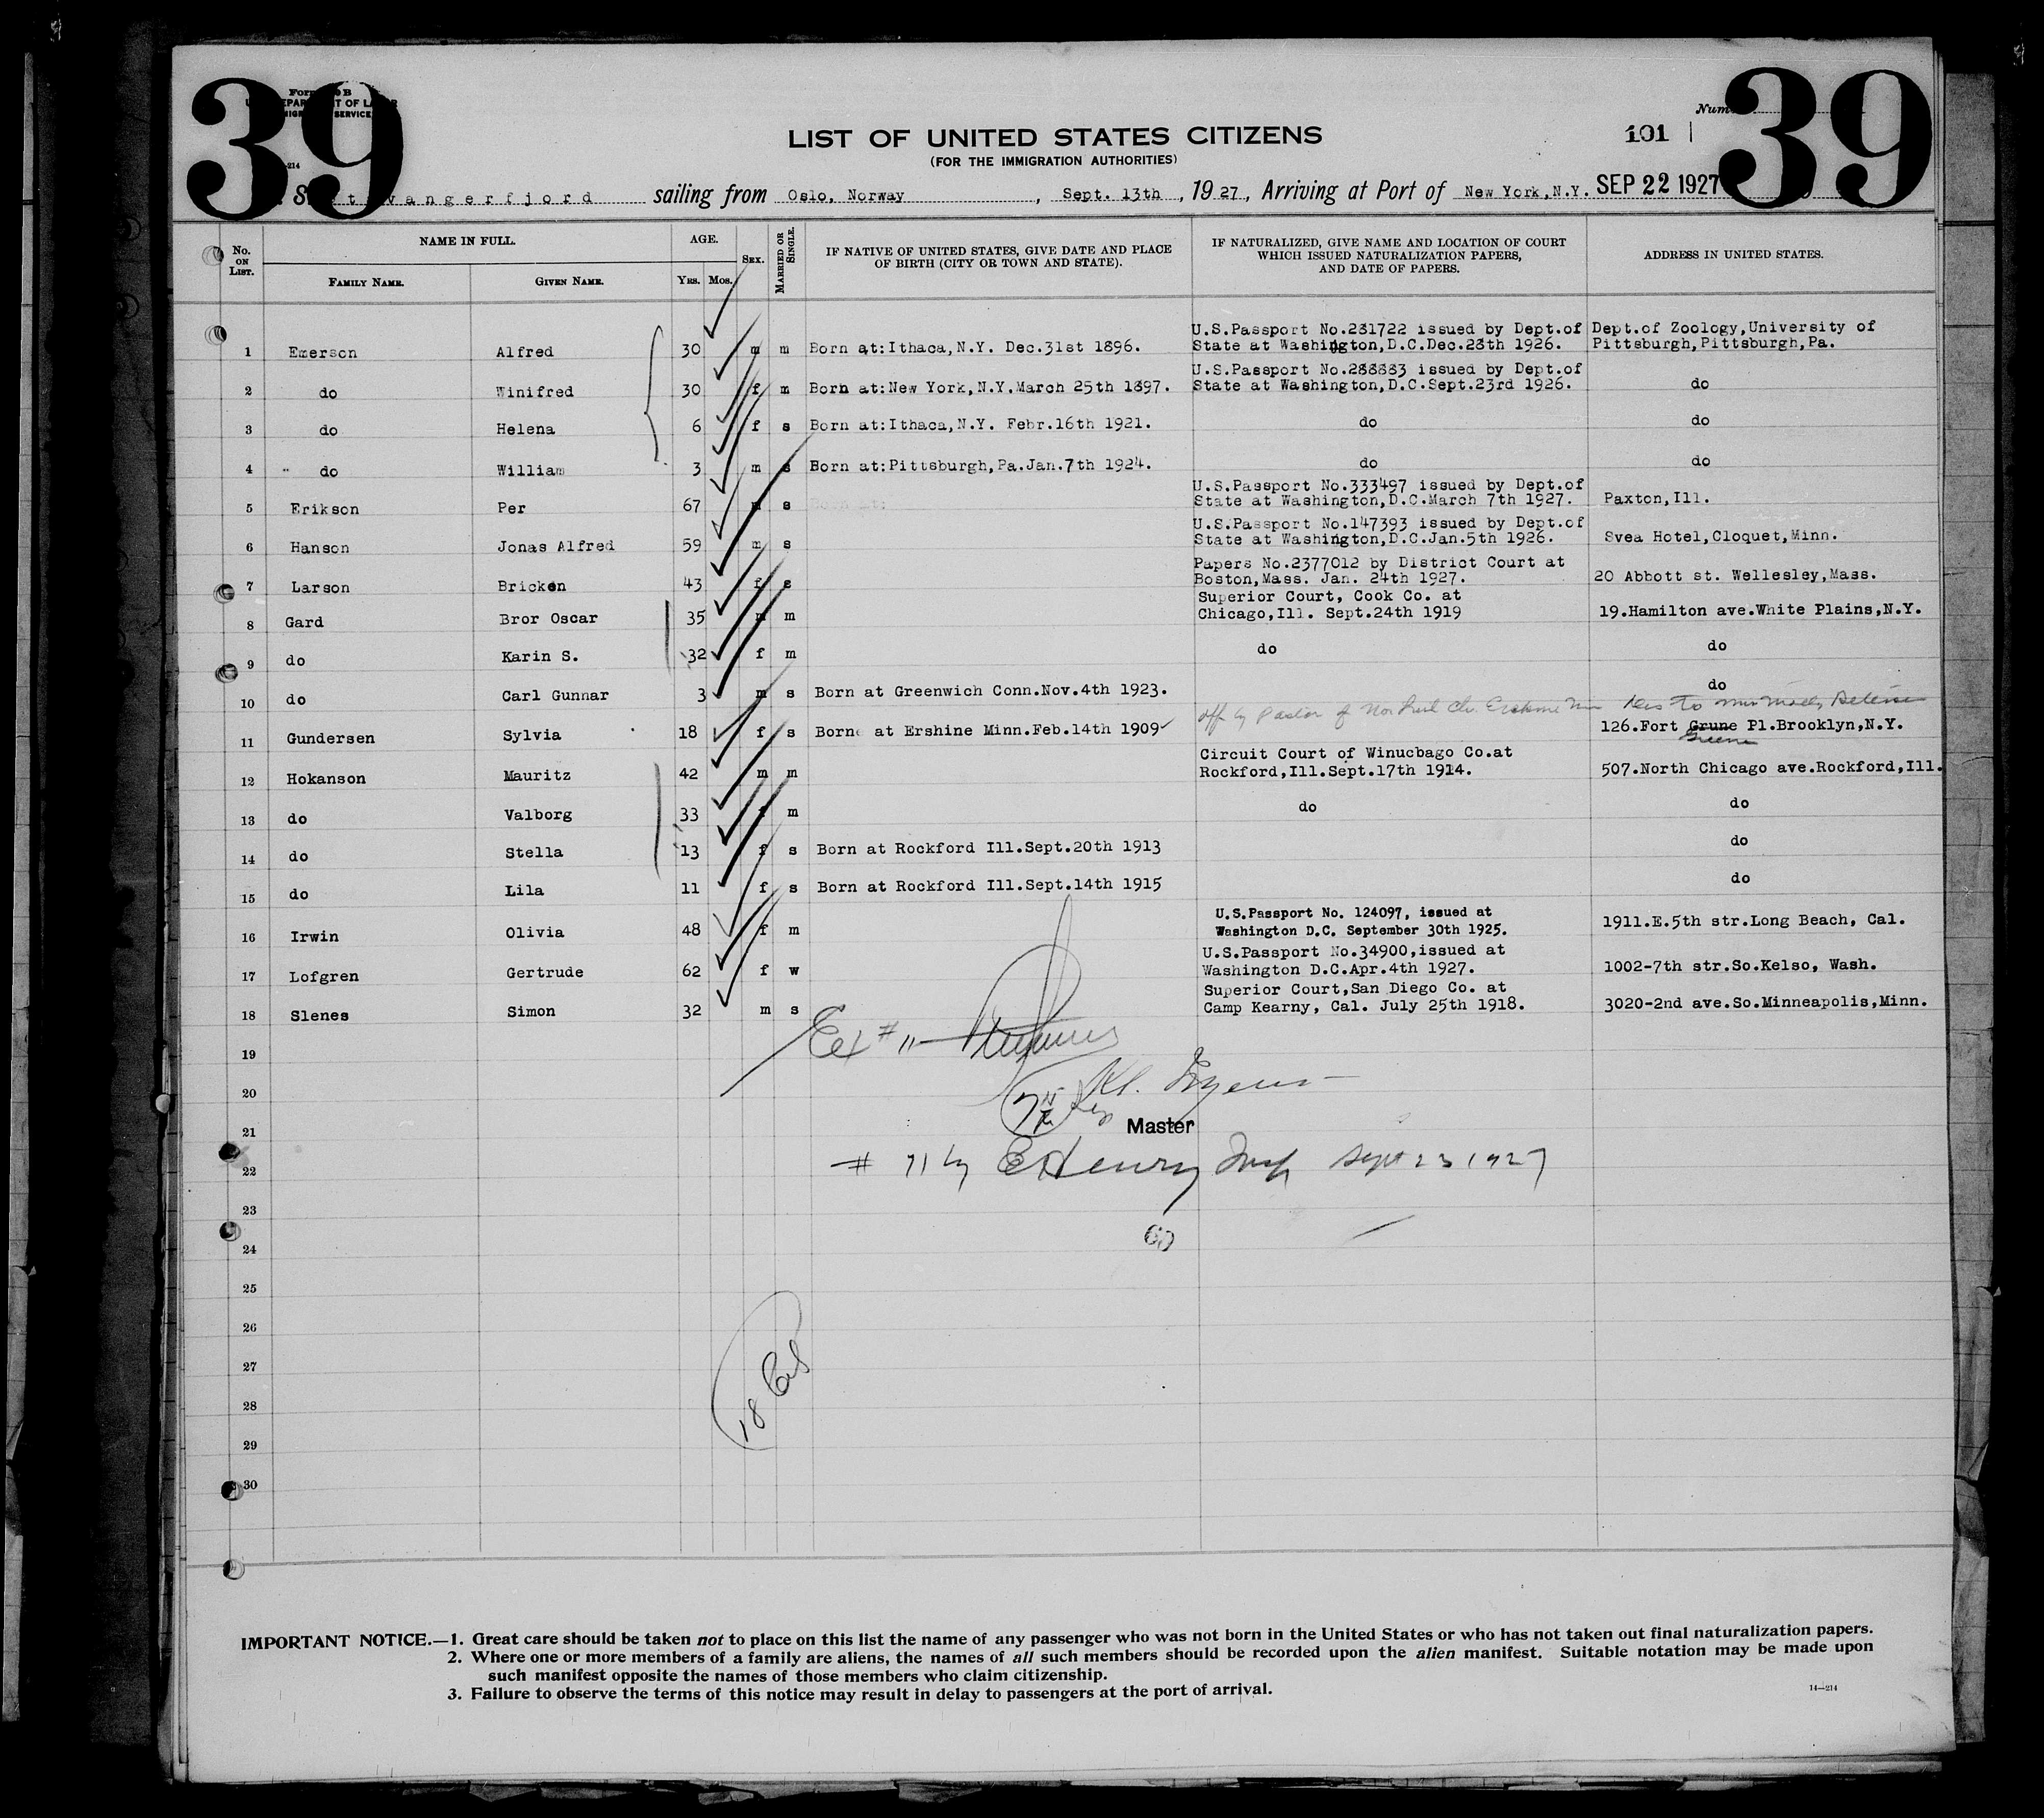 39
39
Form B
Num
LIST OF UNITED STATES CITIZENS
101
(FOR THE IMMIGRATION AUTHORITIES)
S t vangerfjord sailing from Oslo, Norway, Sept. 13th, 1927, Arriving at Port of New York,N.Y. SEP 22 1927
No. ON LIST.
NAME IN FULL.
FAMILY NAME.
GIVEN NAME.
AGE.
YRS. MOS.
SEX.
MARRIED OR SINGLE.
IF NATIVE OF UNITED STATES, GIVE DATE AND PLACE
OF BIRTH (CITY OR TOWN AND STATE).
IF NATURALIZED, GIVE NAME AND LOCATION OF COURT
WHICH ISSUED NATURALIZATION PAPERS,
AND DATE OF PAPERS.
ADDRESS IN UNITED STATES.
U.S.Passport No.231722 issued by Dept.of Dept.of Zoology,University of
1 Emerson Alfred 30 m m Born at:Ithaca,N.Y. Dec.31st 1896. State at Washington,D.C.Dec.28th 1926. Pittsburgh,Pittsburgh,Pa.
U.S.Passport No.288883 issued by Dept.of
2 do Winifred 30 f m Born at:New York,N.Y.March 25th 1897. State at Washington,D.C.Sept.23rd 1926. do
3 do Helena 6 f s Born at:Ithaca,N.Y. Febr.16th 1921. do do
4 do William 3 m s Born at:Pittsburgh,Pa.Jan.7th 1924. do do
U.S.Passport No.333497 issued by Dept.of
5 Erikson Per 67 m s State at Washington,D.C.March 7th 1927. Paxton,Ill.
U.S.Passport No.147393 issued by Dept.of
6 Hanson Jonas Alfred 59 m s State at Washington,D.C.Jan.5th 1926. Svea Hotel,Cloquet,Minn.
Papers No.2377012 by District Court at
7 Larson Bricken 43 f s Boston,Mass. Jan. 24th 1927. 20 Abbott st. Wellesley,Mass.
Superior Court, Cook Co. at
8 Gard Bror Oscar 35 m m Chicago,Ill. Sept.24th 1919 19.Hamilton ave.White Plains,N.Y.
9 do Karin S. 32 f m do do
10 do Carl Gunnar 3 m s Born at Greenwich Conn.Nov.4th 1923. do
11 Gundersen Sylvia 18 f s Borne at Ershine Minn.Feb.14th 1909 126.Fort Grune Pl.Brooklyn,N.Y.
Greene
Circuit Court of Winucbago Co.at
12 Hokanson Mauritz 42 m m Rockford,Ill.Sept.17th 1914. 507.North Chicago ave.Rockford,Ill.
13 do Valborg 33 f m do do
14 do Stella 13 f s Born at Rockford Ill.Sept.20th 1913 do
15 do Lila 11 f s Born at Rockford Ill.Sept.14th 1915 do
U.S.Passport No. 124097, issued at
16 Irwin Olivia 48 f m Washington D.C. September 30th 1925. 1911.E.5th str.Long Beach, Cal.
U.S.Passport No.34900,issued at
17 Lofgren Gertrude 62 f w Washington D.C.Apr.4th 1927. 1002-7th str.So.Kelso, Wash.
Superior Court,San Diego Co. at
18 Slenes Simon 32 m s Camp Kearny, Cal. July 25th 1918. 3020-2nd ave.So.Minneapolis,Minn.
19
20
21
Master
22 # 11 by E Henry Insp Sept 23 1927
23
24
25
26
27
28
29
30
IMPORTANT NOTICE.—1. Great care should be taken not to place on this list the name of any passenger who was not born in the United States or who has not taken out final naturalization papers.
2. Where one or more members of a family are aliens, the names of all such members should be recorded upon the alien manifest. Suitable notation may be made upon
such manifest opposite the names of those members who claim citizenship.
3. Failure to observe the terms of this notice may result in delay to passengers at the port of arrival.
14—214